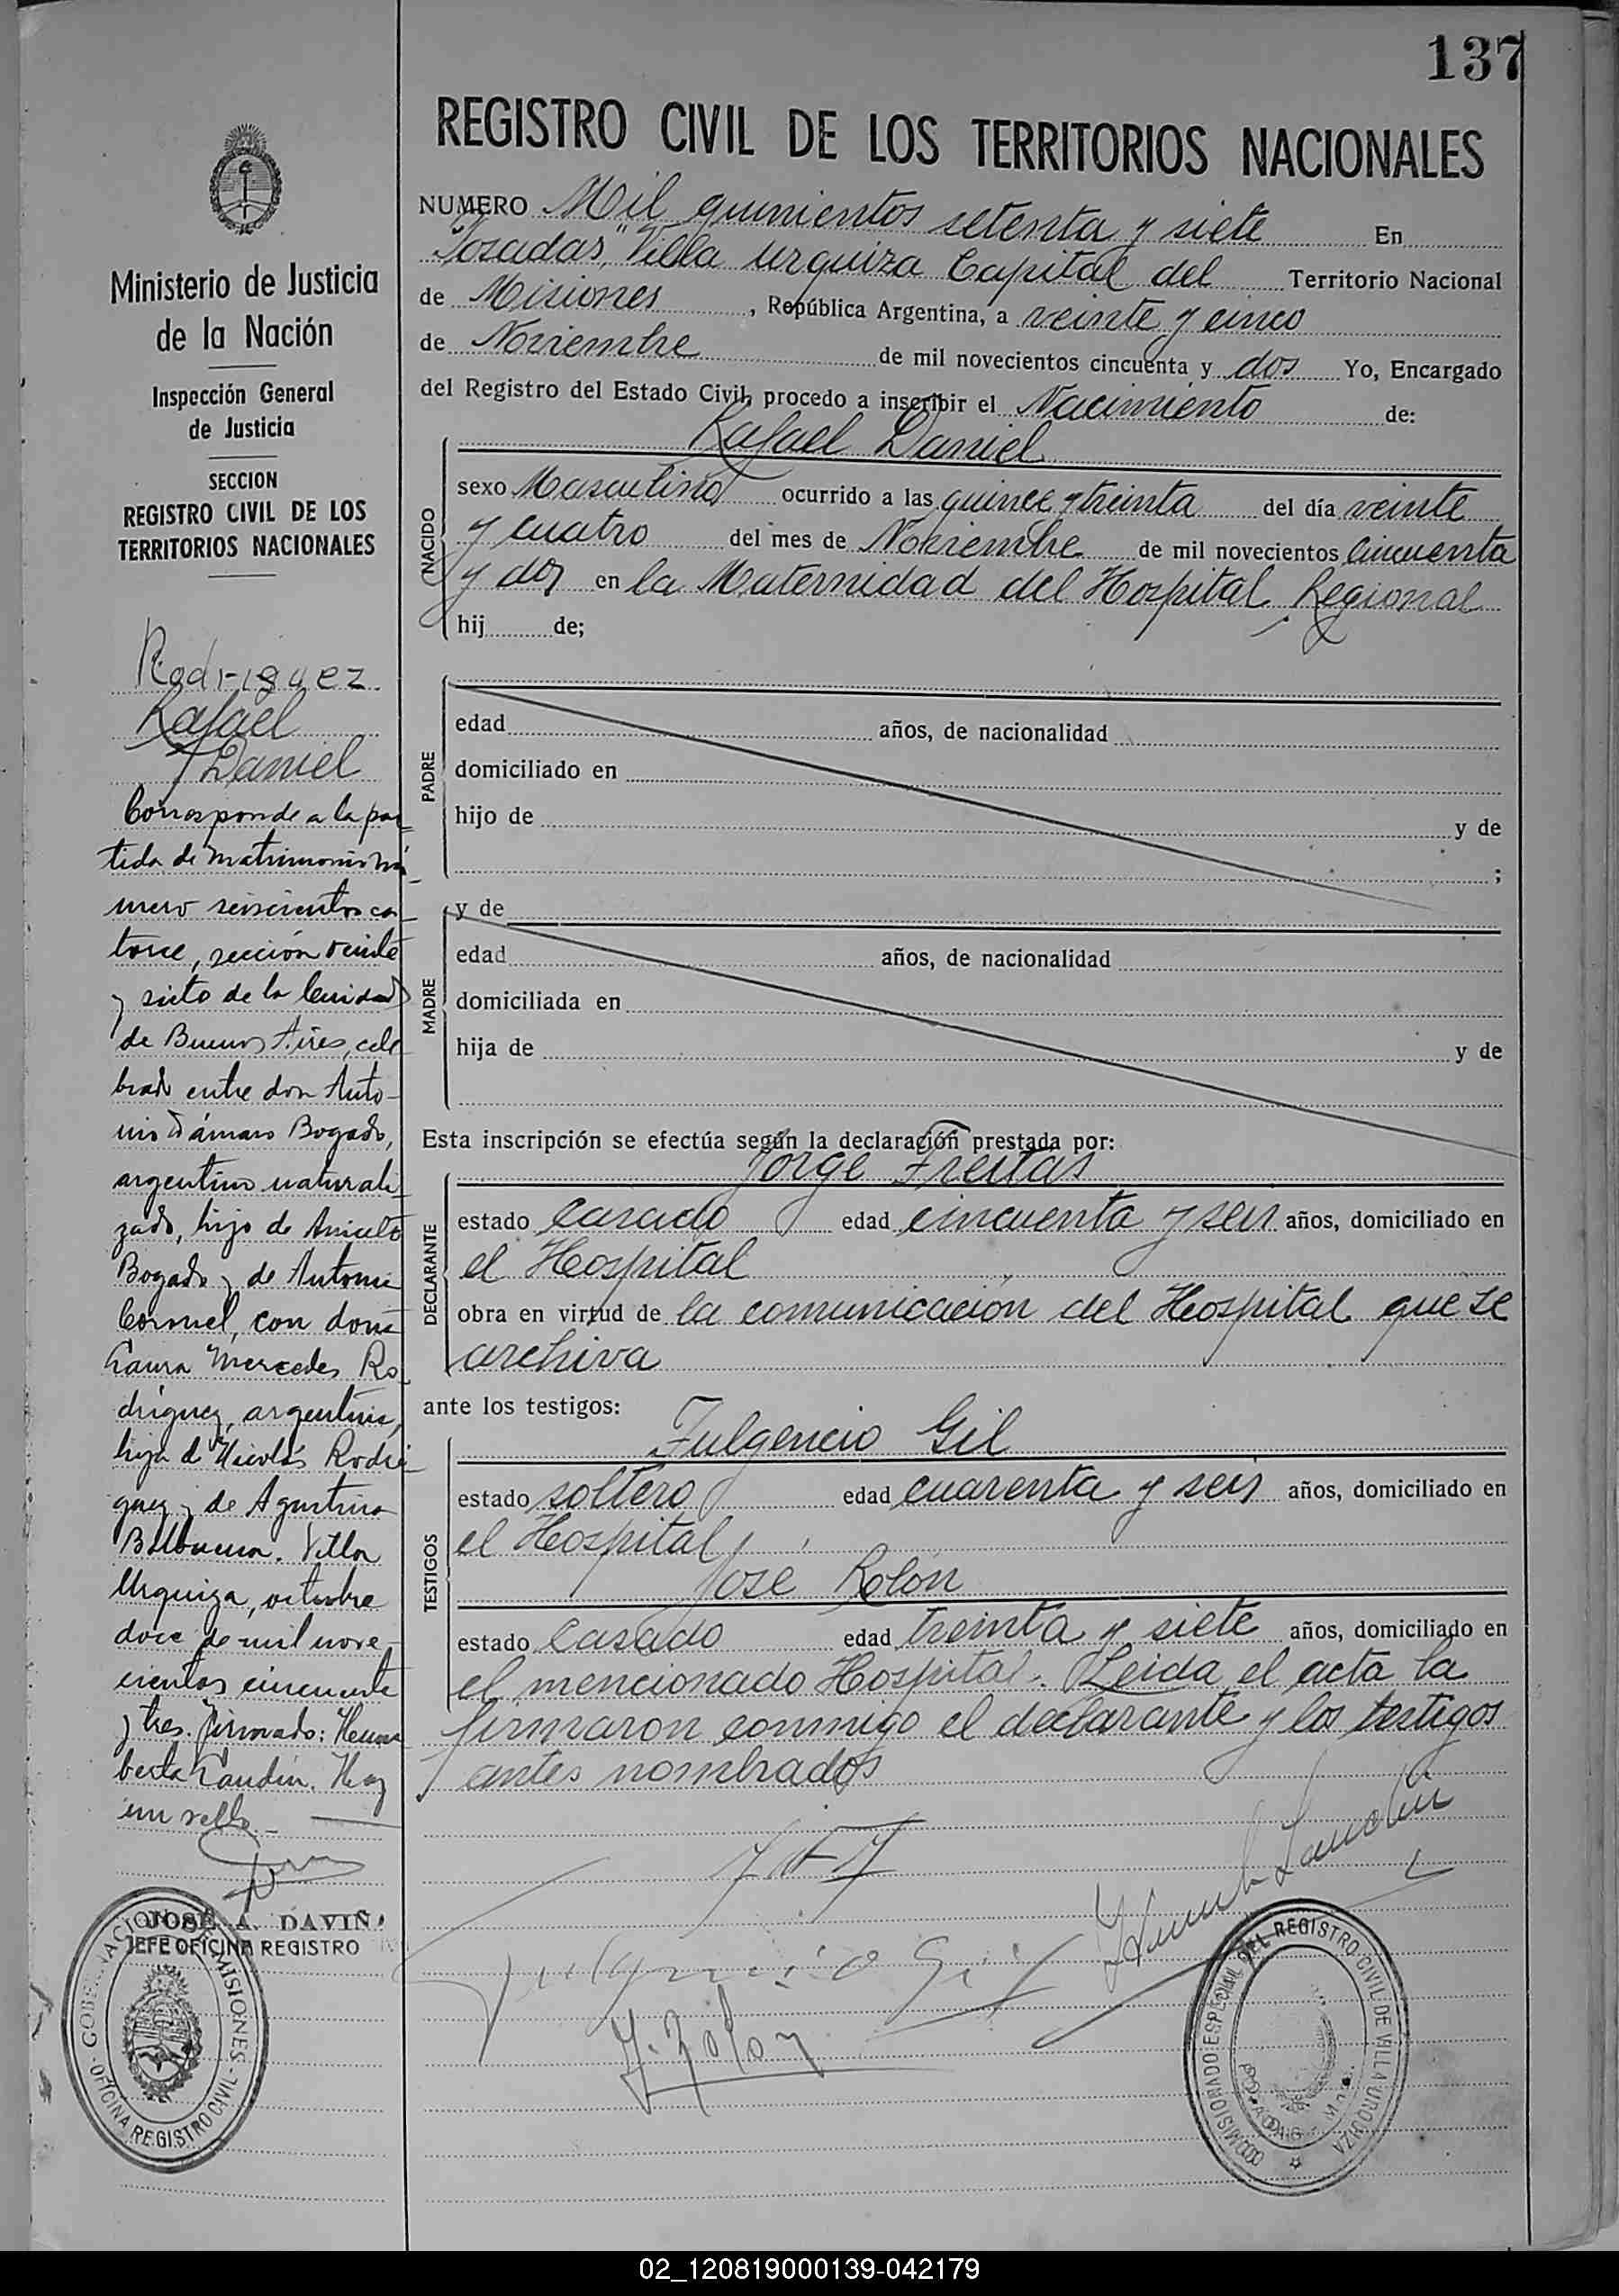 137
REGISTRO CIVIL DE LOS TERRITORIOS NACIONALES
NUMERO Mil quinientos setenta y siete En
"Posadas," Villa Urquiza Capital del Territorio Nacional
de Misiones, República Argentina, a veinte y cinco
de Noviembre de mil novecientos cincuenta y dos Yo, Encargado
del Registro del Estado Civil, procedo a inscribir el Nacimiento de:
Rafael Daniel
NACIDO
sexo Masculino ocurrido a las quince y treinta del día veinte
y cuatro del mes de Noviembre de mil novecientos cincuenta
y dos en la Maternidad del Hospital Regional
hij de;
PADRE
edad años, de nacionalidad
domiciliado en
hijo de y de
;
MADRE
y de
edad años, de nacionalidad
domiciliada en
hija de y de
Esta inscripción se efectúa según la declaración prestada por:
Jorge Freitas
DECLARANTE
estado casado edad cincuenta y seis años, domiciliado en
el Hospital
obra en virtud de la comunicación del Hospital que se
archiva
ante los testigos:
Fulgencio Gil
TESTIGOS
estado soltero edad cuarenta y seis años, domiciliado en
el Hospital
José Rolón
estado casado edad treinta y siete años, domiciliado en
el mencionado Hospital. Leida el acta la
firmaron conmigo el declarante y los testigos
antes nombrados
Fulgencio Gil
J. Rolon
COMISIONADO ESPECIAL DEL REGISTRO CIVIL DE VILLA URQUIZA
Ministerio de Justicia
de la Nación
Inspección General
de Justicia
SECCION
REGISTRO CIVIL DE LOS
TERRITORIOS NACIONALES
Rodriguez
Rafael
Daniel
Corresponde a la par
tida de matrimonio nú
mero seiscientos ca
torce, sección veinte
y siete de la Ciudad
de Buenos Aires, cele
brado entre don Anto-
nio Dámaso Bogado,
argentino naturali
zado, hijo de Aniceto
Bogado y de Antonia
Coronel, con doña
Laura Mercedes Ro
driguez, argentina,
hija de Nicolás Rodri
guez y de Agustina
Balbuena. Villa
Urquiza, octubre
doce de mil nove-
cientos cincuenta
y tres. Firmado: Hum
berto Landin. Hay
un sello.
JOSÉ A. DAVIÑ
JEFE OFICINA REGISTRO
GOBERNACION MISIONES
OFICINA REGISTRO CIVIL
02_120819000139-042179